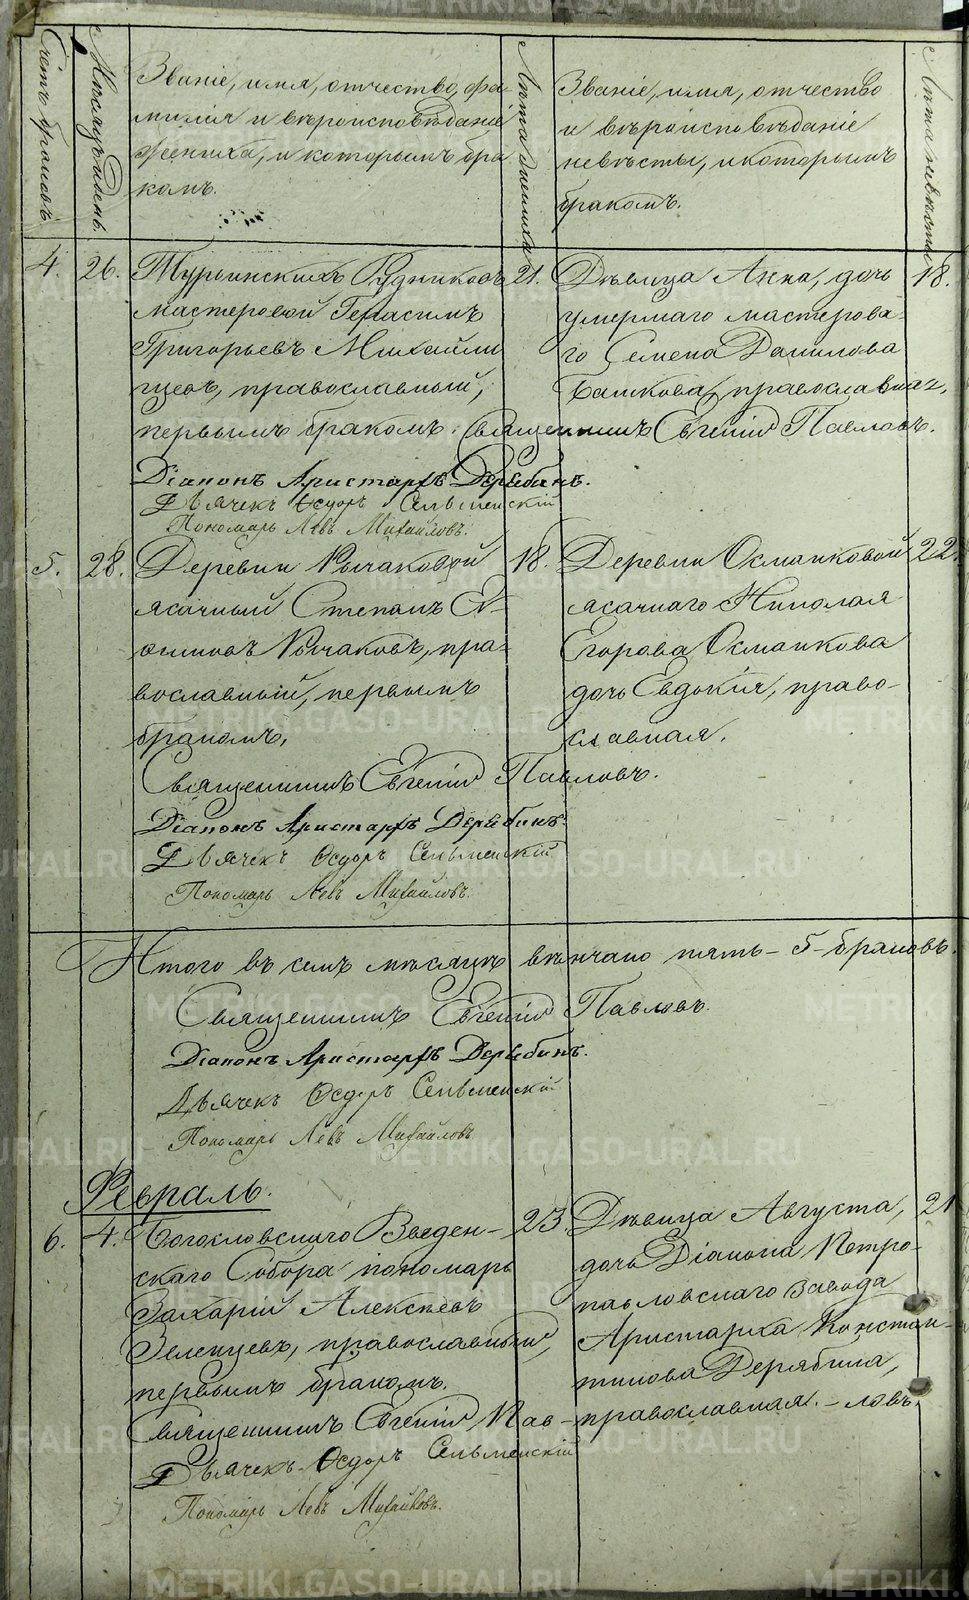 METRIKI.GASO-URAL.RU
Счетъ браковъ.
Мѣсяцъ и день.
Званіе, имя, отчество, фа-
милія и вѣроисповѣданіе
жениха, и которымъ бра-
комъ.
Лѣта жениха
Званіе, имя, отчество
и вѣроисповѣданіе
невѣсты, и которымъ
бракомъ.
Лѣта невѣсты
4. 26.
Турьинскихъ Рудниковъ
мастеровой Герасимъ
Григорьевъ Михайли
цевъ, православный,
первымъ бракомъ.
21.
Дѣвица Анна, дочь
умершаго мастерова-
го Семена Данилова
Башкова, православная,
18.
Священникъ Евгеній Павловъ.
Діаконъ Аристархъ Дерябинъ.
Дьячекъ Ѳедоръ Сельменскій
Пономарь Левъ Михайловъ.
5. 28.
Деревни Рычаковой
ясачный Степанъ
Рычаковъ, пра-
вославный, первымъ
бракомъ,
18.
Деревни Османковой
ясачнаго Николая
Егорова Османкова
дочь Евдокія, право-
славная.
22.
Священникъ Евгеній Павловъ.
Діаконъ Аристархъ Дерябинъ.
Дьячекъ Ѳедоръ Сельменскій
Пономарь Левъ Михайловъ.
Итого въ семъ мѣсяцѣ вѣнчано пять - 5 - браковъ.
Священникъ Евгеній Павловъ.
Діаконъ Аристархъ Дерябинъ.
Дьячекъ Ѳедоръ Сельменскій
Пономарь Левъ Михайловъ
Февраль.
6. 4.
Богословскаго Введен-
скаго Собора пономарь
Захарій Алексѣевъ
Зеленцевъ, православный,
первымъ бракомъ.
23.
Дѣвица Августа,
дочь Діакона Петро-
павловскаго завода
Аристарха Констан-
тинова Дерябина,
православная.
21
Священникъ Евгеній Пав-ловъ.
Дьячекъ Ѳедоръ Сельменскій
Пономарь Левъ Михайловъ.
METRIKI.GASO-URAL.RU